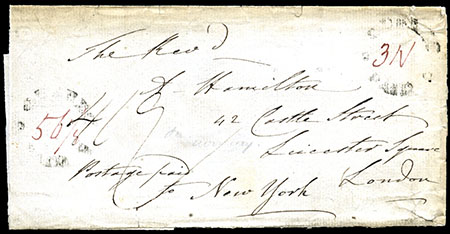 The Rev'd
Dr Hamilton
42 Castle Street
Leicester Square
London
Postage paid
to New York
3N
56 1/2